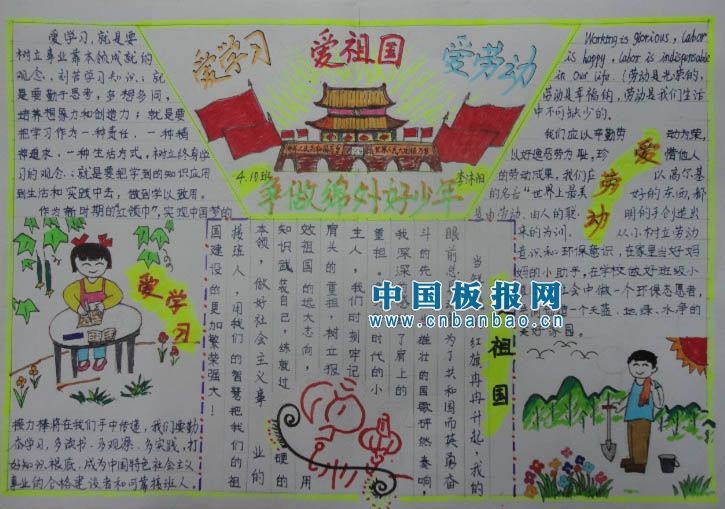 爱学习
爱祖国
爱劳动
中华人民共和国万岁
世界人民大团结万岁
4.10班
争做绵外好少年
爱学习，就是要
树立事业靠本领成就的
观念，刻苦学习知识；就
是要勤于思考，多想多问，
培养想象力和创造力；就是要
把学习作为一种责任、一种精
神追求、一种生活方式，树立终身学
习的观念；就是要把学到的知识应用
到生活和实践中去，做到学以致用。
作为新时期的红领巾，实现中国梦的
爱学习
接力棒将在我们手中传递，我们要勤
奋学习，多读书、多观源、多实践，打
好知识根底，成为中国特色社会主义
事业的合格建设者和可靠接班人。
爱祖国
当
红旗冉冉升起，我的
眼前总
为了共和国而英勇奋
斗的先
雄壮的国歌砰然奏响，
我深深
了肩上的
重担。
时代的小
主人，我们时刻牢记
肩头的重担，树立报
效祖国的远大志向，
知识武装自己，练就过硬的
本领，做好社会主义事业的
接班人，用我们的智慧把我们的祖
国建设的更加繁荣强大！
Working is glorious, labor
is happy, labor is indispensable
in our life.（劳动是光荣的，
劳动是幸福的，劳动是我们生活
中不可缺少的。
我们应以辛勤劳动为荣，
以好逸恶劳为耻，珍惜他人
的劳动成果，我们应以高尔基
的名言“世界上最美好的东西，都
是由劳动、由人的聪明的手创造出
来的”为训，从小树立劳动
意识和环保意识，在家里当好妈
妈的小助手，在学校做好班级小
会中做一个环保志愿者，
一个天蓝、地绿、水净的
美好家园。
爱劳动
中国板报网
www.cnbanbao.cn